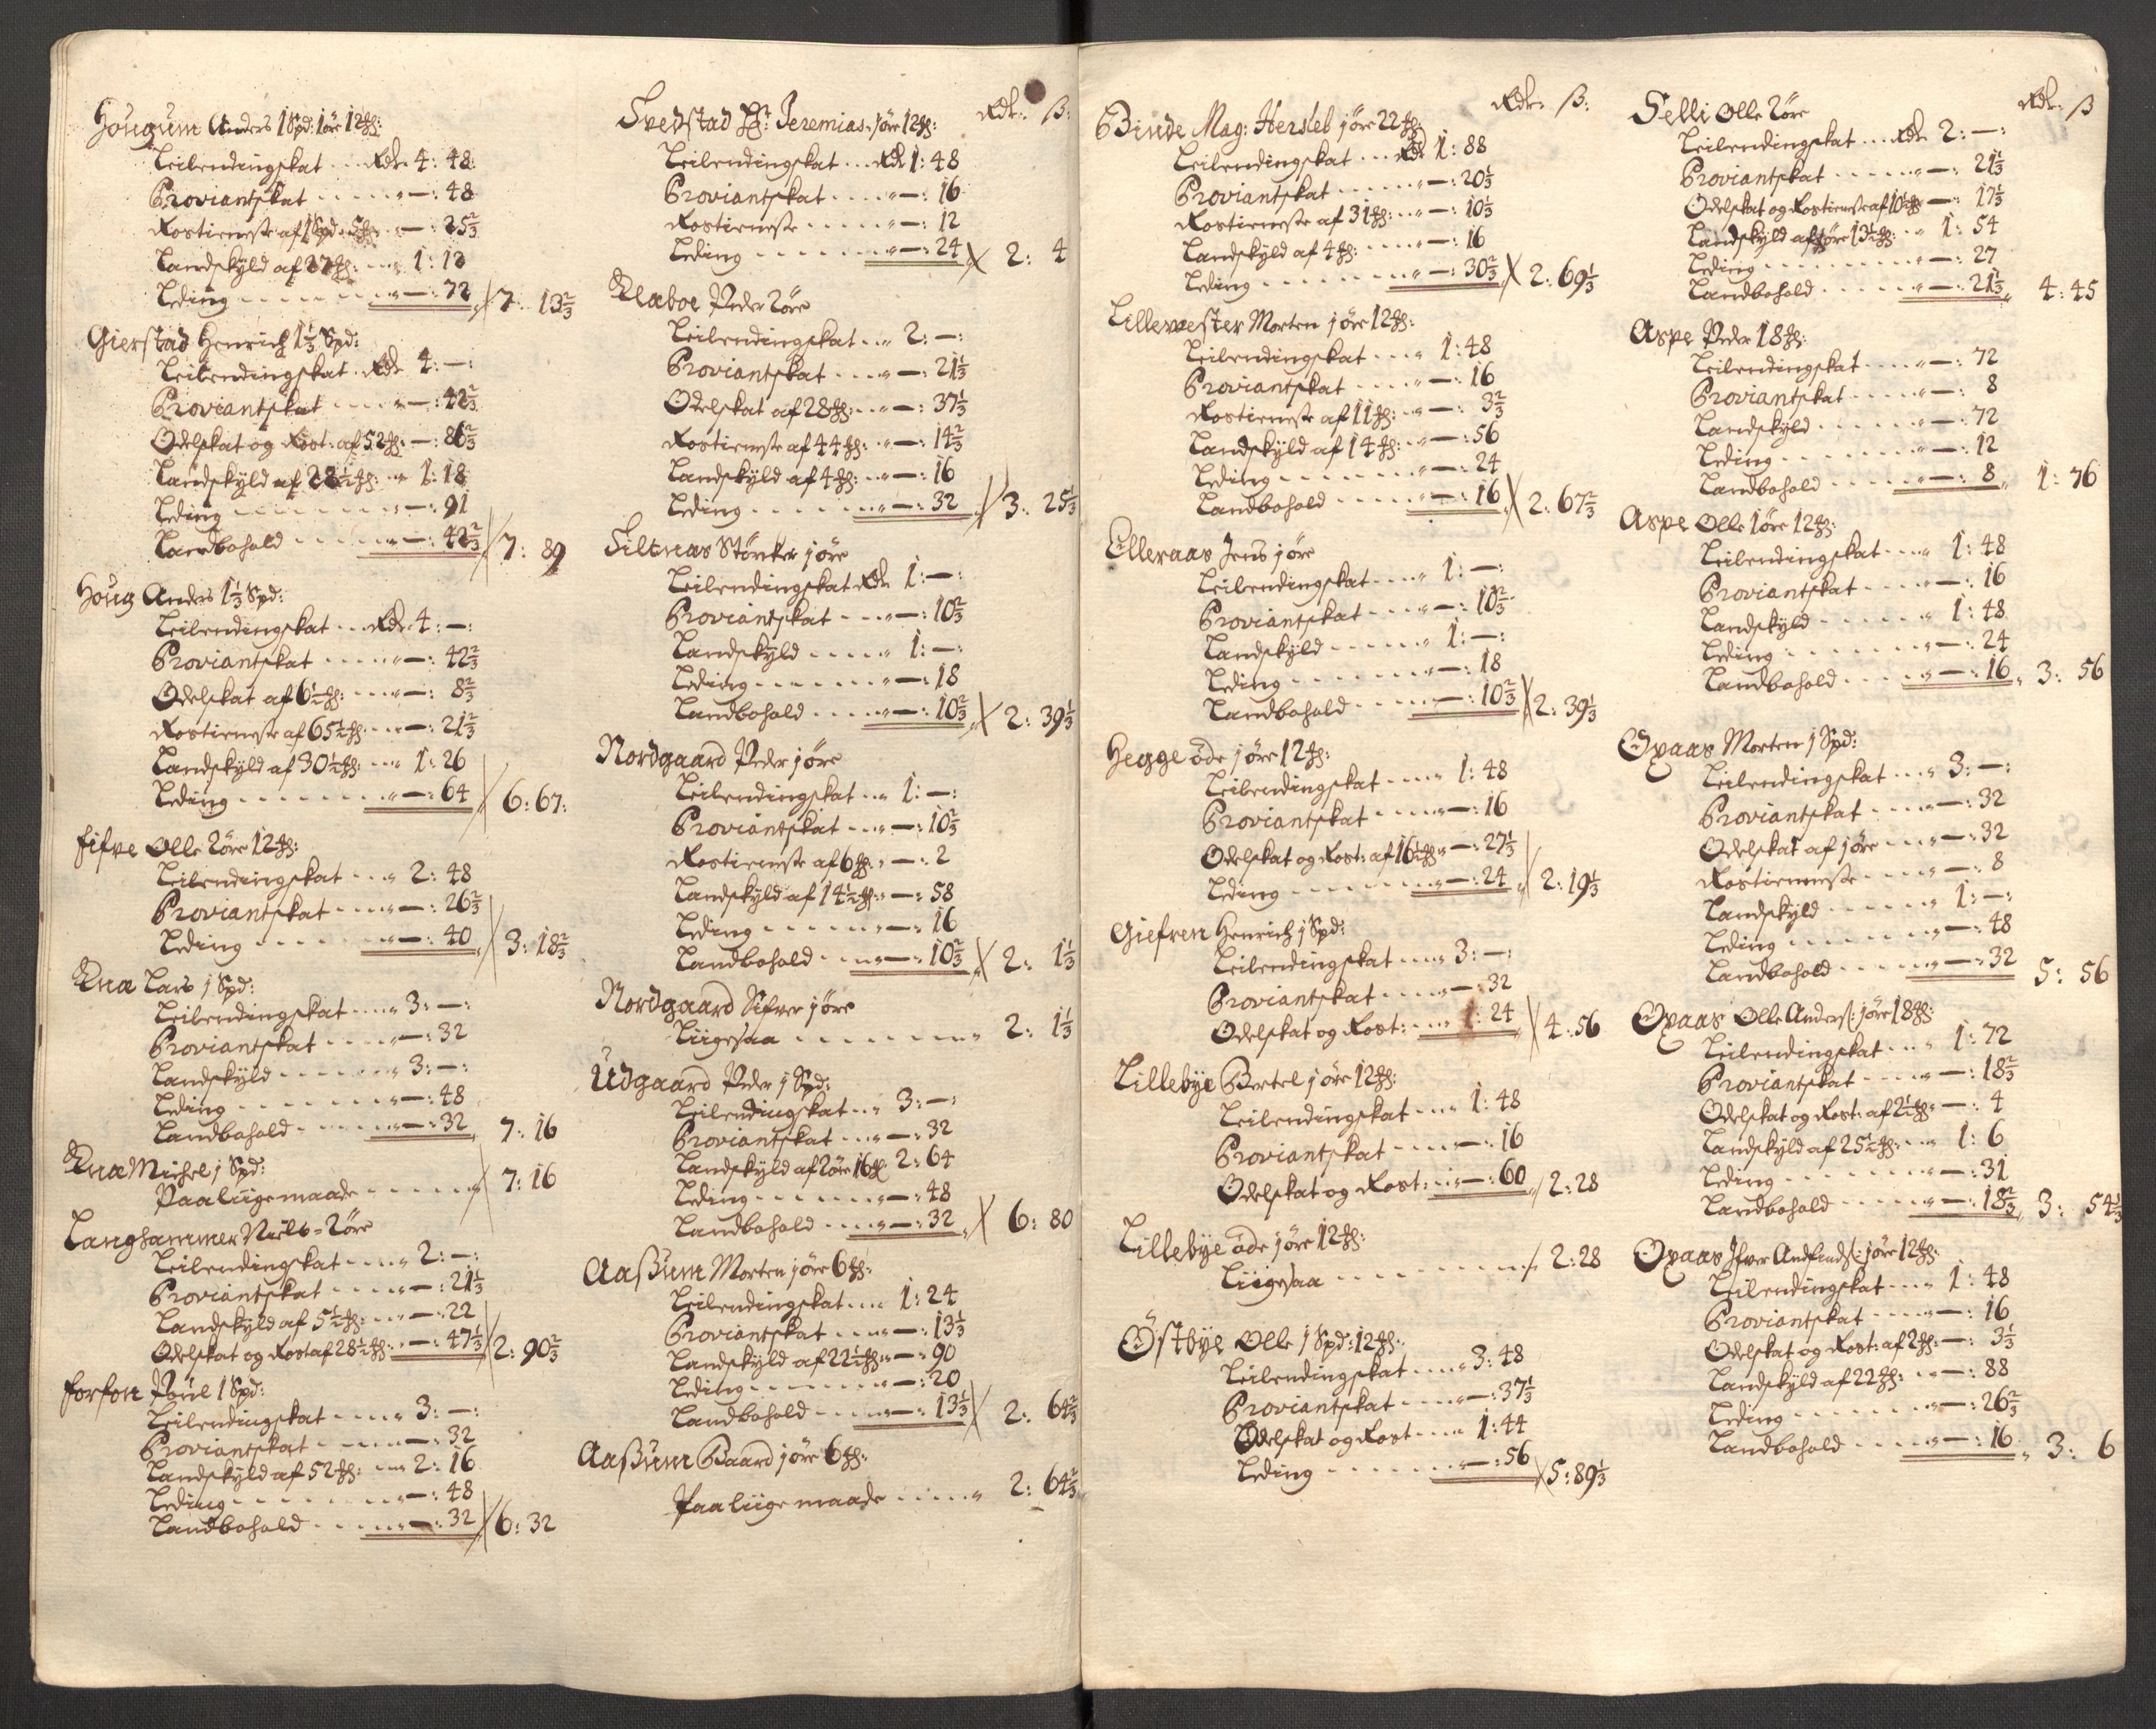 Hougum Anders 1 Spd: 1 øre 12 ꝳ:
Leilendingskat . . . Rdr 4: 48
Proviantskat . . . . . — : 48
Rostieneste af 1 Spd: 5 ꝳ . — : 25 2/3
Landskyld af 27 ꝳ: . . . 1: 12
Leding . . . . . . . — : 72 7: 13 2/3
Gierstad Henrich 1 1/3 Spd:
Leilendingskat . Rdr 4: —:
Proviantskat . . . . — : 42 2/3
Odelskat og Rost: af 52 ꝳ: — : 86 2/3
Landskyld af 28 1/2 ꝳ: . . 1: 18
Leding . . . . . . . — : 91
Landbohold . . . . . — : 42 2/3 7: 89
Houg Anders 1 1/3 Spd:
Leilendingskat . . . Rdr 4: —:
Proviantskat . . . . . — : 42 2/3
Odelskat af 6 1/2 ꝳ: . . . — : 8 2/3
Rostieneste af 65 1/2 ꝳ: . . — : 21 2/3
Landskyld af 30 1/2 ꝳ: . . . 1: 26
Leding . . . . . . . — : 64 6: 67:
Fifve Olle 2 øre 12 ꝳ:
Leilendingskat . . . 2: 48
Proviantskat . . . . — : 26 2/3
Leding . . . . . . — : 40 3: 18 2/3
Knæ Lars j Spd:
Leilendingskat . . . . 3: —:
Proviantskat . . . . — : 32
Landskyld . . . . . . 3: —:
Leding . . . . . . . — : 48
Landbohold . . . . . — : 32 7: 16
Knæ Michel j Spd:
Paa liige maade . . . . . 7: 16
Langhammer Niels 2 øre
Leilendingskat . . . . 2: —:
Proviantskat . . . . — : 21 1/3
Landskyld af 5 1/2 ꝳ: . . — : 22
Odelskat og Rost af 28 1/2 ꝳ: . — : 47 1/3 2: 90 2/3
Forfon Poul 1 Spd:
Leilendingskat . . . . 3: —:
Proviantskat . . . . — : 32
Landskyld af 52 ꝳ: . . 2: 16
Leding . . . . . . . — : 48
Landbohold . . . . . — : 32 6: 32
Svedstad Hr: Jeremias 1 øre 12 ꝳ: Rdr: ß:
Leilendingskat . . . Rdr 1: 48
Proviantskat . . . . — : 16
Rostieneste . . . . . — : 12
Leding . . . . . . . — : 24 2: 4
Klæboe Peder 2 øre
Leilendingskat . . . 2: —:
Proviantskat . . . . — : 21 1/3
Odelskat af 28 ꝳ: . . . — : 37 1/3
Rostieneste af 44 ꝳ: . . — : 14 2/3
Landskyld af 4 ꝳ: . . . — : 16
Leding . . . . . . . — : 32 3: 25 1/3
Siltnæs Stöncker j øre
Leilendingskat Rdr 1: —:
Proviantskat . . . — : 10 2/3
Landskyld . . . . . 1: —:
Leding . . . . . . — : 18
Landbohold . . . . . — : 10 2/3 2: 39 1/3
Nordgaard Peder j øre
Leilendingskat . . . 1: —:
Proviantskat . . . — : 10 2/3
Rostieneste af 6 ꝳ: . — : 2
Landskyld af 14 1/2 ꝳ: . — : 58
Leding . . . . . . — : 16
Landbohold . . . . — : 10 2/3 2: 1 1/3
Nordgaard Sifver j øre
Liigesaa . . . . . . . . 2: 1 1/3
Udgaard Peder j Spd:
Leilendingskat . . . 3: —:
Proviantskat . . . — : 32
Landskyld af 2 øre 16 ꝳ 2: 64
Leding . . . . . . — : 48
Landbohold . . . . — : 32 6: 80
Aaßum Morten j øre 6 ꝳ:
Leilendingskat . . . 1: 24
Proviantskat . . . . — : 13 1/3
Landskyld af 22 1/2 ꝳ: . — : 90
Leding . . . . . . — : 20
Landbohold . . . . — : 13 1/3 2: 64 2/3
Aaßum Baard j øre 6 ꝳ:
Paa liige maade . . . . . 2: 64 2/3
Binde Mag: Hersleb j øre 22 ꝳ Rdr: ß:
Leilendingskat . . . Rdr 1: 88
Proviantskat . . . . . — : 20 1/3
Rostieneste af 31 ꝳ: . . — : 10 1/3
Landskyld af 4 ꝳ: . . . . — : 16
Leding . . . . . . . — : 30 2/3 2: 69 1/3
Lillevester Morten j øre 12 ꝳ:
Leilendingskat . . . . 1: 48
Proviantskat . . . . — : 16
Rostieneste af 11 ꝳ: . . — : 3 2/3
Landskyld af 14 ꝳ: . . — : 56
Leding . . . . . . . — : 24
Landbohold . . . . . — : 16 2: 67 2/3
Elleraas Jens j øre
Leilendingskat . . . . 1: —:
Proviantskat . . . . — : 10 2/3
Landskyld . . . . . . 1: —:
Leding . . . . . . . — : 18
Landbohold . . . . . — : 10 2/3 2: 39 1/3
Hegge öde j øre 12 ꝳ:
Leilendingskat . . . . 1: 48
Proviantskat . . . . — : 16
Odelskat og Rost: af 16 1/2 ꝳ — : 27 1/3
Leding . . . . . . . — : 24 2: 19 1/3
Giefren Henrich j Spd:
Leilendingskat . . . . 3: —:
Proviantskat . . . . — : 32
Odelskat og Rost: . . . 1: 24 4: 56
Lillebye Bertel j øre 12 ꝳ:
Leilendingskat . . . . 1: 48
Proviantskat . . . . — : 16
Odelskat og Rost: . . — : 60 2: 28
Lillebye öde j øre 12 ꝳ:
Liigesaa . . . . . . . . . 2: 28
Östbye Olle j Spd: 12 ꝳ:
Leilendingskat . . . . 3: 48
Proviantskat . . . . — : 37 1/3
Odelskat og Rost . . . 1: 44
Leding . . . . . . . — : 56 5: 89 1/3
Selli Olle 2 øre Rdr: ß
Leilendingskat . . . Rdr 2: —:
Proviantskat . . . . . — : 21 1/3
Odelskat og Rostieneste af 10 1/2 ꝳ — : 17 1/3
Landskyld af j øre 13 1/2 ꝳ: . . 1: 54
Leding . . . . . . . . — : 27
Landbohold . . . . . . — : 21 1/3 4: 45
Aspe Peder 18 ꝳ:
Leilendingskat . . . . — : 72
Proviantskat . . . . . — : 8
Landskyld . . . . . . — : 72
Leding . . . . . . . — : 12
Landbohold . . . . . — : 8 1: 76
Aspe Olle 1 øre 12 ꝳ:
Leilendingskat . . . . 1: 48
Proviantskat . . . . — : 16
Landskyld . . . . . . 1: 48
Leding . . . . . . . — : 24
Landbohold . . . . . — : 16 3: 56
Opaas Morten j Spd:
Leilendingskat . . . 3: —:
Proviantskat . . . . — : 32
Odelskat af j øre . . . — : 32
Rostieneste . . . . . — : 8
Landskyld . . . . . . 1: —:
Leding . . . . . . — : 48
Landbohold . . . . . — : 32 5: 56
Opaas Olle Anders: j øre 18 ꝳ:
Leilendingskat . . . . 1: 72
Proviantskat . . . . — : 18 2/3
Odelskat og Rost: af 2 1/2 ꝳ: — : 4
Landskyld af 25 1/2 ꝳ: . . . 1: 6
Leding . . . . . . . — : 31
Landbohold . . . . . — : 18 2/3 3: 54 1/3
Opaas Ifver Andfinds: j øre 12 ꝳ:
Leilendingskat . . . . 1: 48
Proviantskat . . . . — : 16
Odelskat og Rost: af 2 ꝳ: — : 3 1/3
Landskyld af 22 ꝳ: . . — : 88
Leding . . . . . . . — : 26 2/3
Landbohold . . . . . — : 16 3: 6